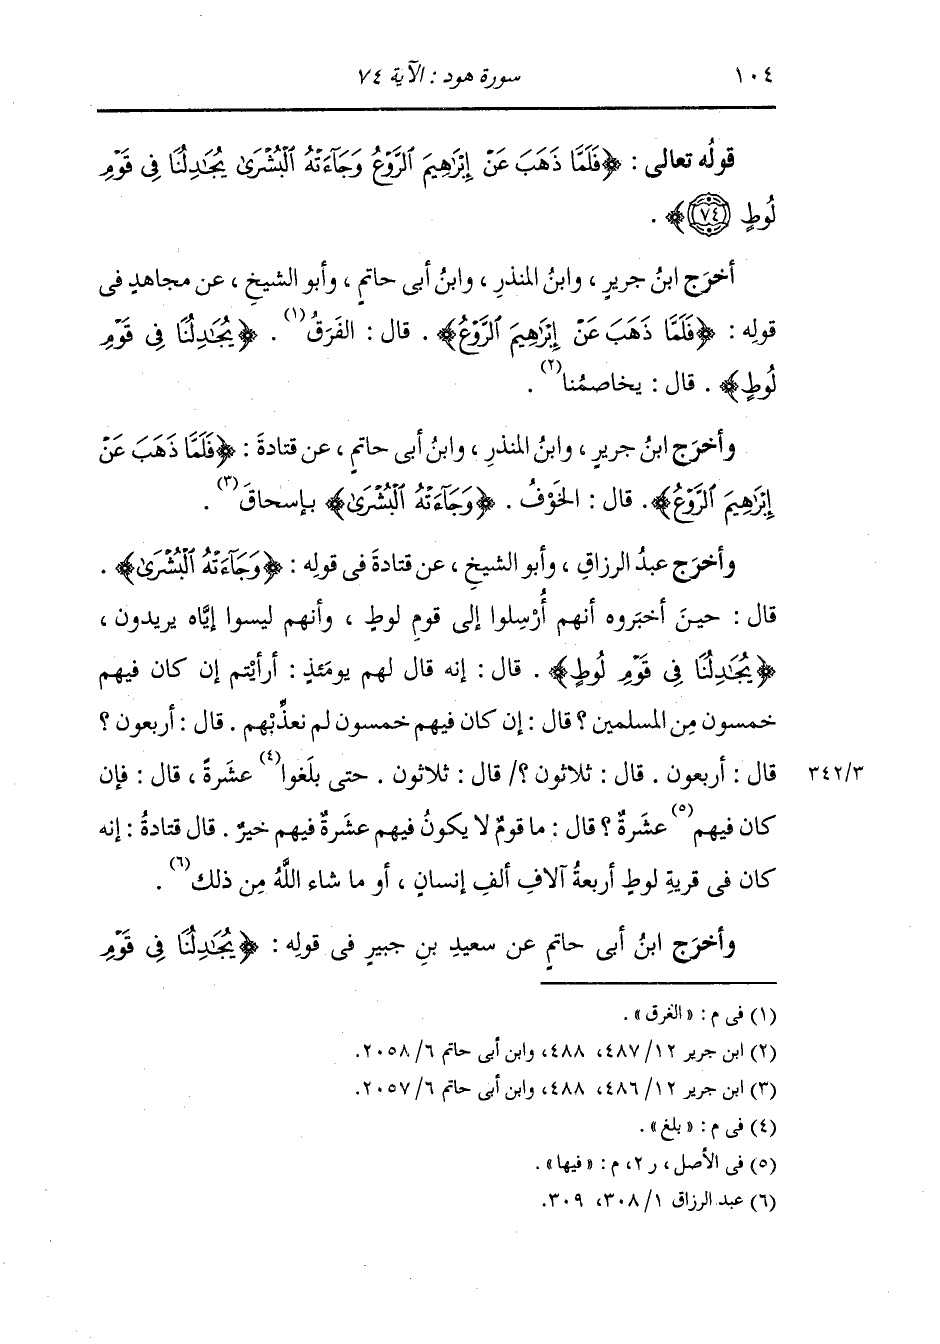 ١٠٤ سورة هود : الآية ٧٤
قولُه تعالى : ﴿فَلَمَّا ذَهَبَ عَنْ إِبْرَٰهِيمَ ٱلرَّوْعُ وَجَآءَتْهُ ٱلْبُشْرَىٰ يُجَٰدِلُنَا فِى قَوْمِ
لُوطٍ ٧٤﴾ .
أخرَج ابنُ جريرٍ ، وابنُ المنذرِ ، وابنُ أبى حاتمٍ ، وأبو الشيخِ ، عن مجاهدٍ فى
قولِه : ﴿فَلَمَّا ذَهَبَ عَنْ إِبْرَٰهِيمَ ٱلرَّوْعُ﴾ . قال : الفَرَقُ(١) . ﴿يُجَٰدِلُنَا فِى قَوْمِ
لُوطٍ﴾ . قال : يخاصمُنا(٢) .
وأخرَج ابنُ جريرٍ ، وابنُ المنذرِ ، وابنُ أبى حاتمٍ ، عن قتادةَ : ﴿فَلَمَّا ذَهَبَ عَنْ
إِبْرَٰهِيمَ ٱلرَّوْعُ﴾ . قال : الخَوْفُ . ﴿وَجَآءَتْهُ ٱلْبُشْرَىٰ﴾ بإسحاقَ(٣) .
وأخرَج عبدُ الرزاقِ ، وأبو الشيخِ ، عن قتادةَ فى قولِه : ﴿وَجَآءَتْهُ ٱلْبُشْرَىٰ﴾ .
قال : حينَ أخبَروه أنهم أُرْسِلوا إلى قومِ لوطٍ ، وأنهم ليسوا إيَّاه يريدون ،
﴿يُجَٰدِلُنَا فِى قَوْمِ لُوطٍ﴾ . قال : إنه قال لهم يومَئذٍ : أرأيْتم إن كان فيهم
خمسون مِن المسلمين ؟ قال : إن كان فيهم خمسون لم نعذِّبْهم . قال : أربعون ؟
قال : أربعون . قال : ثلاثون ؟/ قال : ثلاثون . حتى بلَغوا(٤) عشَرةً ، قال : فإن ٣٤٢/٣
كان فيهم(٥) عشَرةٌ ؟ قال : ما قومٌ لا يكونُ فيهم عشَرةٌ فيهم خيرٌ . قال قتادةُ : إنه
كان فى قريةِ لوطٍ أربعةُ آلافِ ألفِ إنسانٍ ، أو ما شاء اللَّهُ مِن ذلك(٦) .
وأخرَج ابنُ أبى حاتمٍ عن سعيدِ بنِ جبيرٍ فى قولِه : ﴿يُجَٰدِلُنَا فِى قَوْمِ
(١) فى م : «الغرق» .
(٢) ابن جرير ١٢/ ٤٨٧، ٤٨٨، وابن أبى حاتم ٦/ ٢٠٥٨.
(٣) ابن جرير ١٢/ ٤٨٦، ٤٨٨، وابن أبى حاتم ٦/ ٢٠٥٧.
(٤) فى م : «بلغ» .
(٥) فى الأصل ، ر ٢، م : «فيها» .
(٦) عبد الرزاق ١/ ٣٠٨، ٣٠٩.